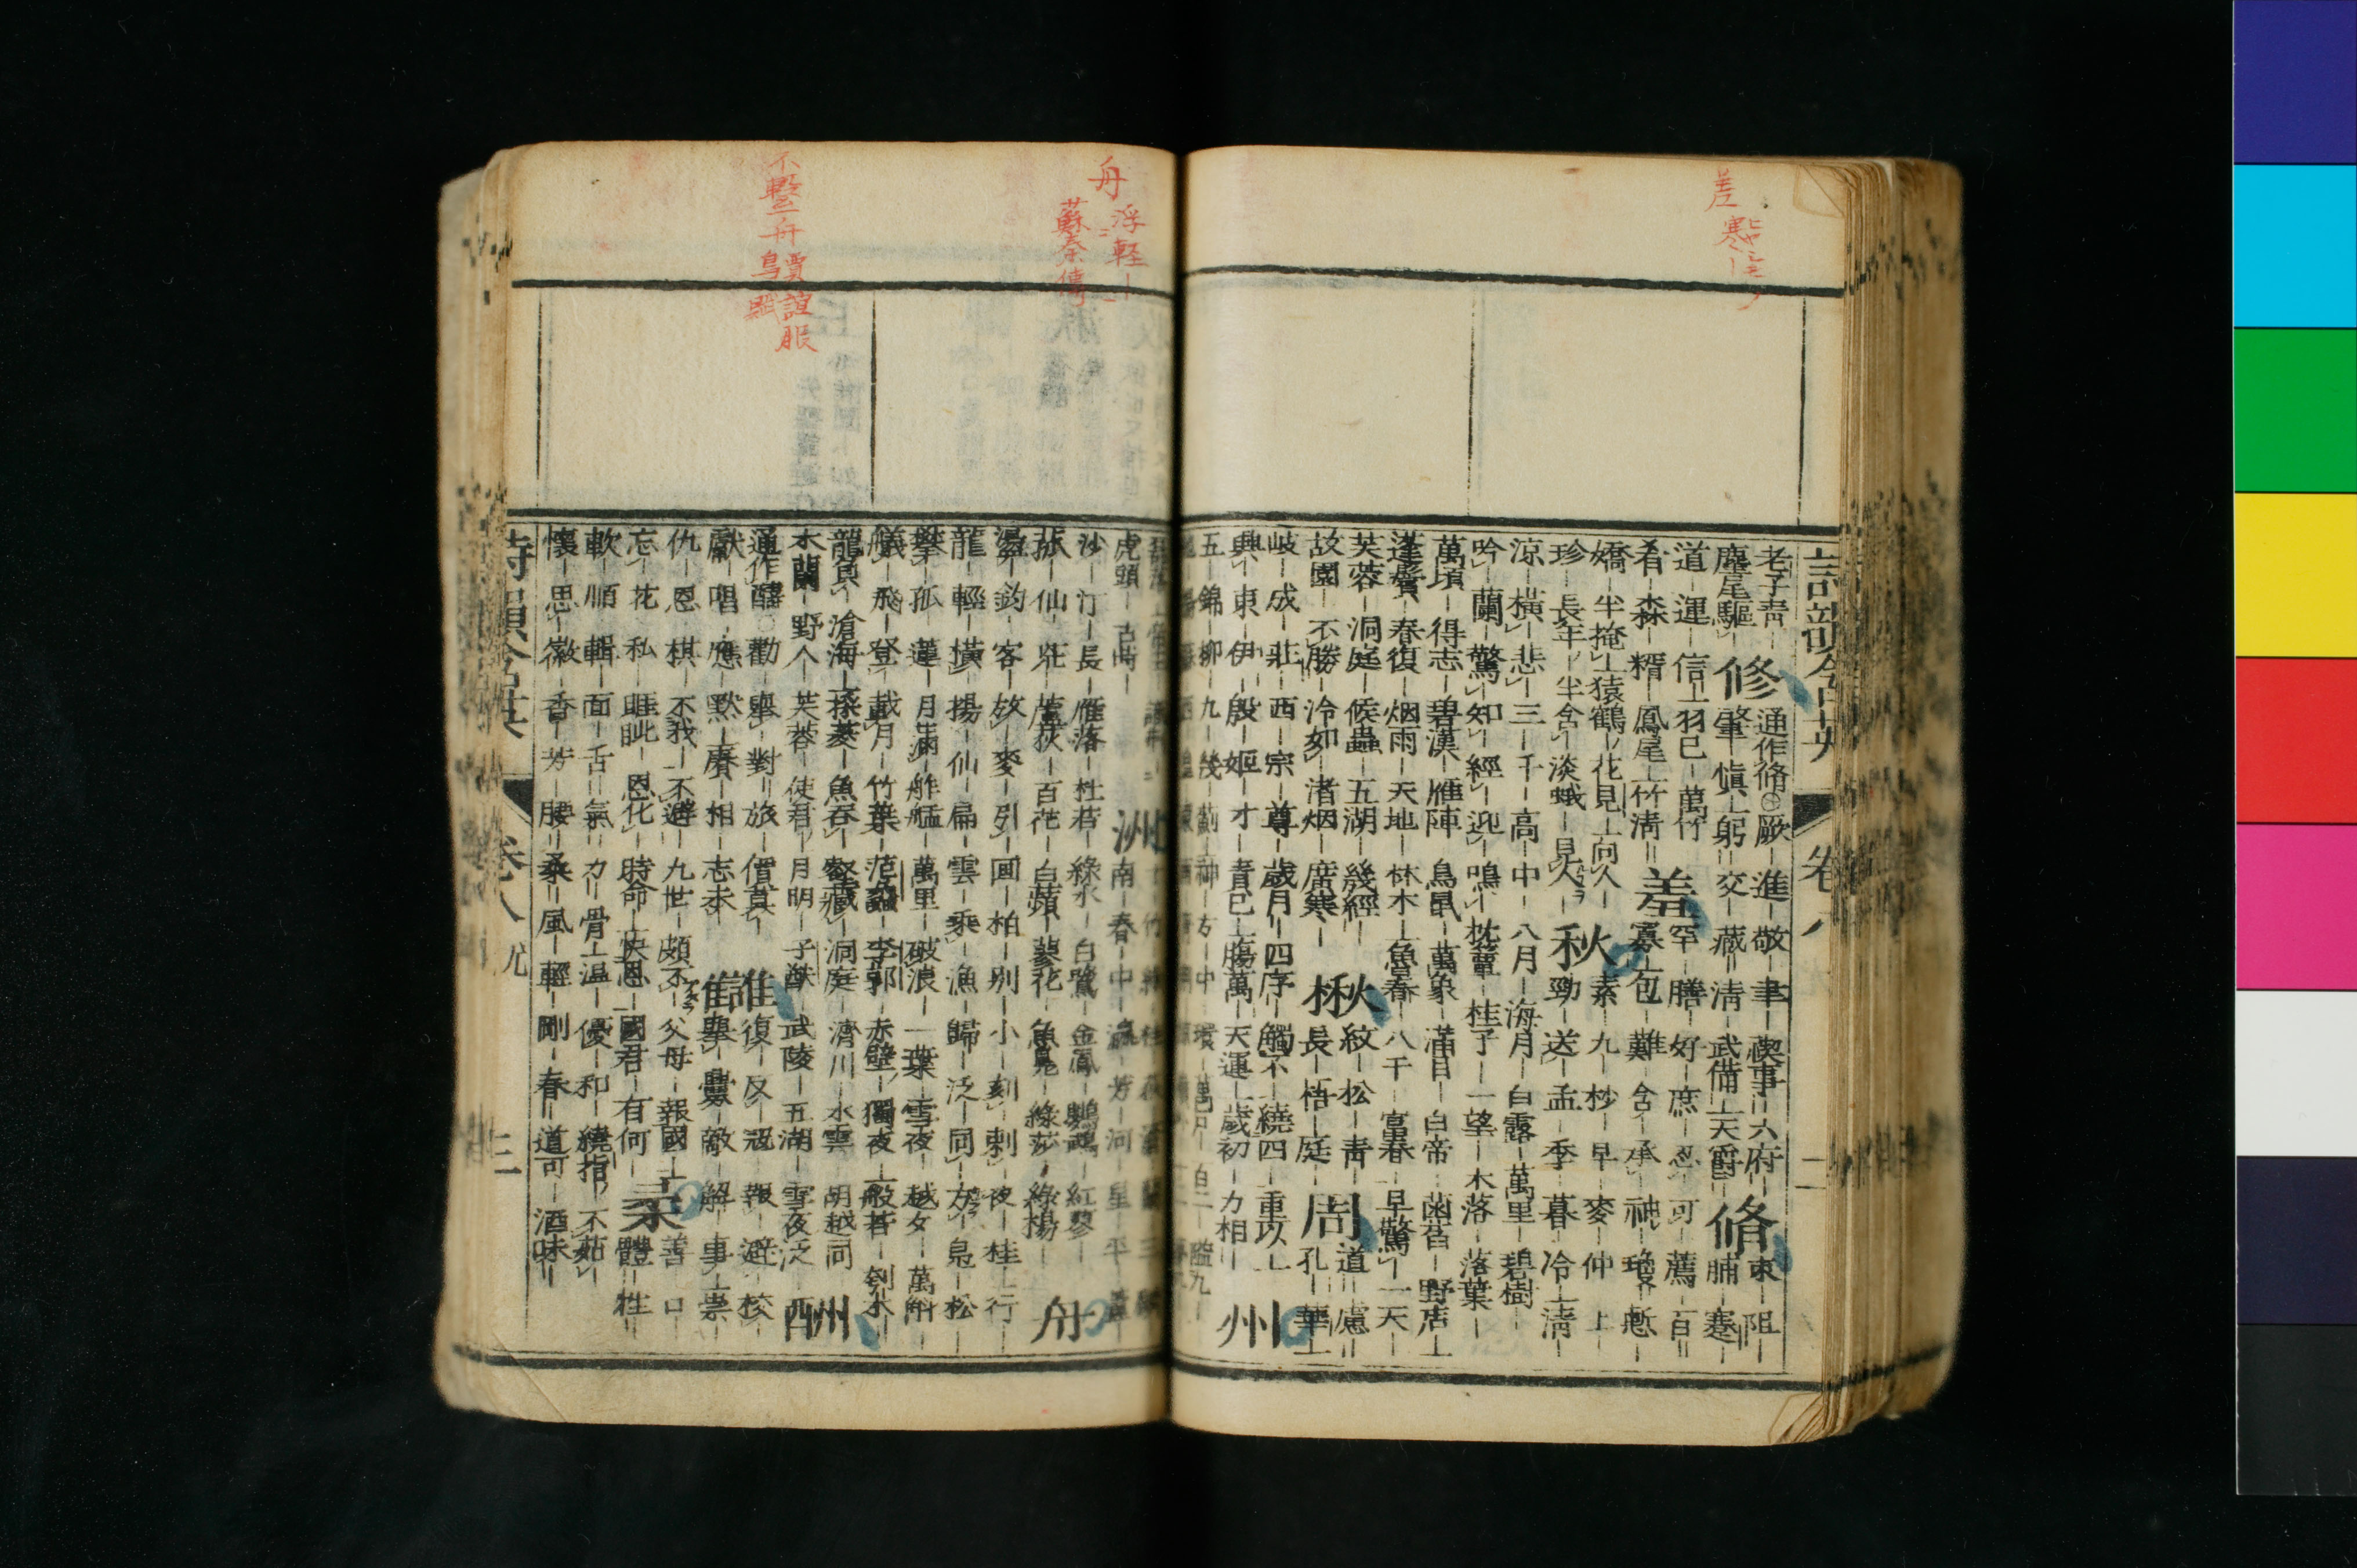 差
寒
詩韻含英
卷八
二
老子靑｜ 修 通作脩○厥｜進｜敬｜聿｜禊事‖六府｜ 脩 束｜阻｜
麈尾驅｜肇｜愼｜躬‖交｜藏‖淸｜武備｜天爵｜脯｜蹇｜
道｜運｜信｜羽已｜萬竹｜ 羞 罕｜膳｜好｜庶｜忍｜可｜薦｜百‖
肴｜森｜糈｜鳳尾｜竹淸‖寡｜包｜難｜含｜承｜神｜瓊｜慙｜
嬌｜半掩｜猿鶴｜花見｜向人｜ 秋 素｜九｜杪｜早｜麥｜仲｜上｜
珍｜長年｜半含｜淡蛾｜見人｜勁｜送｜孟｜季｜暮｜冷｜淸｜
涼｜橫｜悲｜三｜千｜高｜中｜八月｜海月｜白露｜萬里｜碧樹｜
吟｜蘭｜驚｜知｜經｜迎｜鳴｜枕簟｜桂子｜一望｜木落｜落葉｜
萬頃｜得志｜碧漢｜雁陣｜鳥鼠｜萬象｜滿目｜白帝｜菡萏｜野店｜
蓬鬢｜春復｜烟雨｜天地｜林木｜魚春｜八千｜富春｜早驚｜一天｜
芙蓉｜洞庭｜候蟲｜五湖｜幾經｜ 楸 紋｜松｜靑｜ 周 道｜慮‖
故園｜不勝｜冷如｜渚烟｜廣寒｜長｜梧｜庭｜孔｜華｜
岐｜成｜莊｜西｜宗｜尊｜歲月｜四序｜觸不｜繞四｜重以｜ 州
興｜東｜伊｜殷｜姬｜才｜責已｜腸萬｜天運｜歲初｜力相｜
五｜錦｜柳｜九｜幾｜薊｜神｜方｜中｜環｜
舟 浮輕｜
蘇秦傳
不繫｜舟 賈誼服
鳥賦
虎頭｜古尚｜ 洲 南｜春｜中｜瀛｜芳｜河｜星｜平｜
沙｜汀｜長｜雁落｜杜若｜綠水｜白鷺｜金鳳｜鸚鵡｜紅蓼｜ 舟
孤｜仙｜花｜蘆荻｜百花｜白蘋｜蓼花｜魚鳧｜綠莎｜綠楊｜
盪｜釣｜客｜放｜麥｜引｜回｜柏｜別｜小｜刻｜剌｜夜｜桂｜行｜
龍｜輕｜橫｜揚｜仙｜扁｜雲｜乘｜漁｜歸｜泛｜同｜方｜鳧｜松｜
攀｜孤｜蓮｜月滿｜舴艋｜萬里｜破浪｜一葉｜雪夜｜越女｜萬斛｜
艤｜飛｜登｜載月｜竹葉｜范蠡｜李郭｜赤壁｜獨夜｜般若｜刳木｜
龍負｜滄海｜採菱｜魚呑｜壑藏｜洞庭｜濟川｜水雲｜胡越同｜ 酬
木蘭｜野人｜芙蓉｜使君｜月明｜子猷｜武陵｜五湖｜雪夜泛｜
通作醻○勸｜擧｜對｜旅｜價莫｜ 讎 復｜反｜冦｜報｜避｜校｜
獻｜唱｜應｜默｜賡｜相｜志未｜擧｜釁｜敵｜解｜事｜祟｜
仇｜恩｜棋｜不我｜不避｜九世｜頗不｜父母｜報國｜ 柔 善｜口｜
忘｜花｜私｜睚眦｜恩化｜時命｜快恩｜國君｜有何｜體｜牲｜
軟｜順｜輯｜面｜舌｜氣｜力｜骨｜温｜優｜和｜繞指｜不茹｜
懷｜思｜徽｜香｜芳｜腰｜桑｜風｜輕｜剛｜春｜道可｜酒味‖
詩韻含英
卷八
尤
三